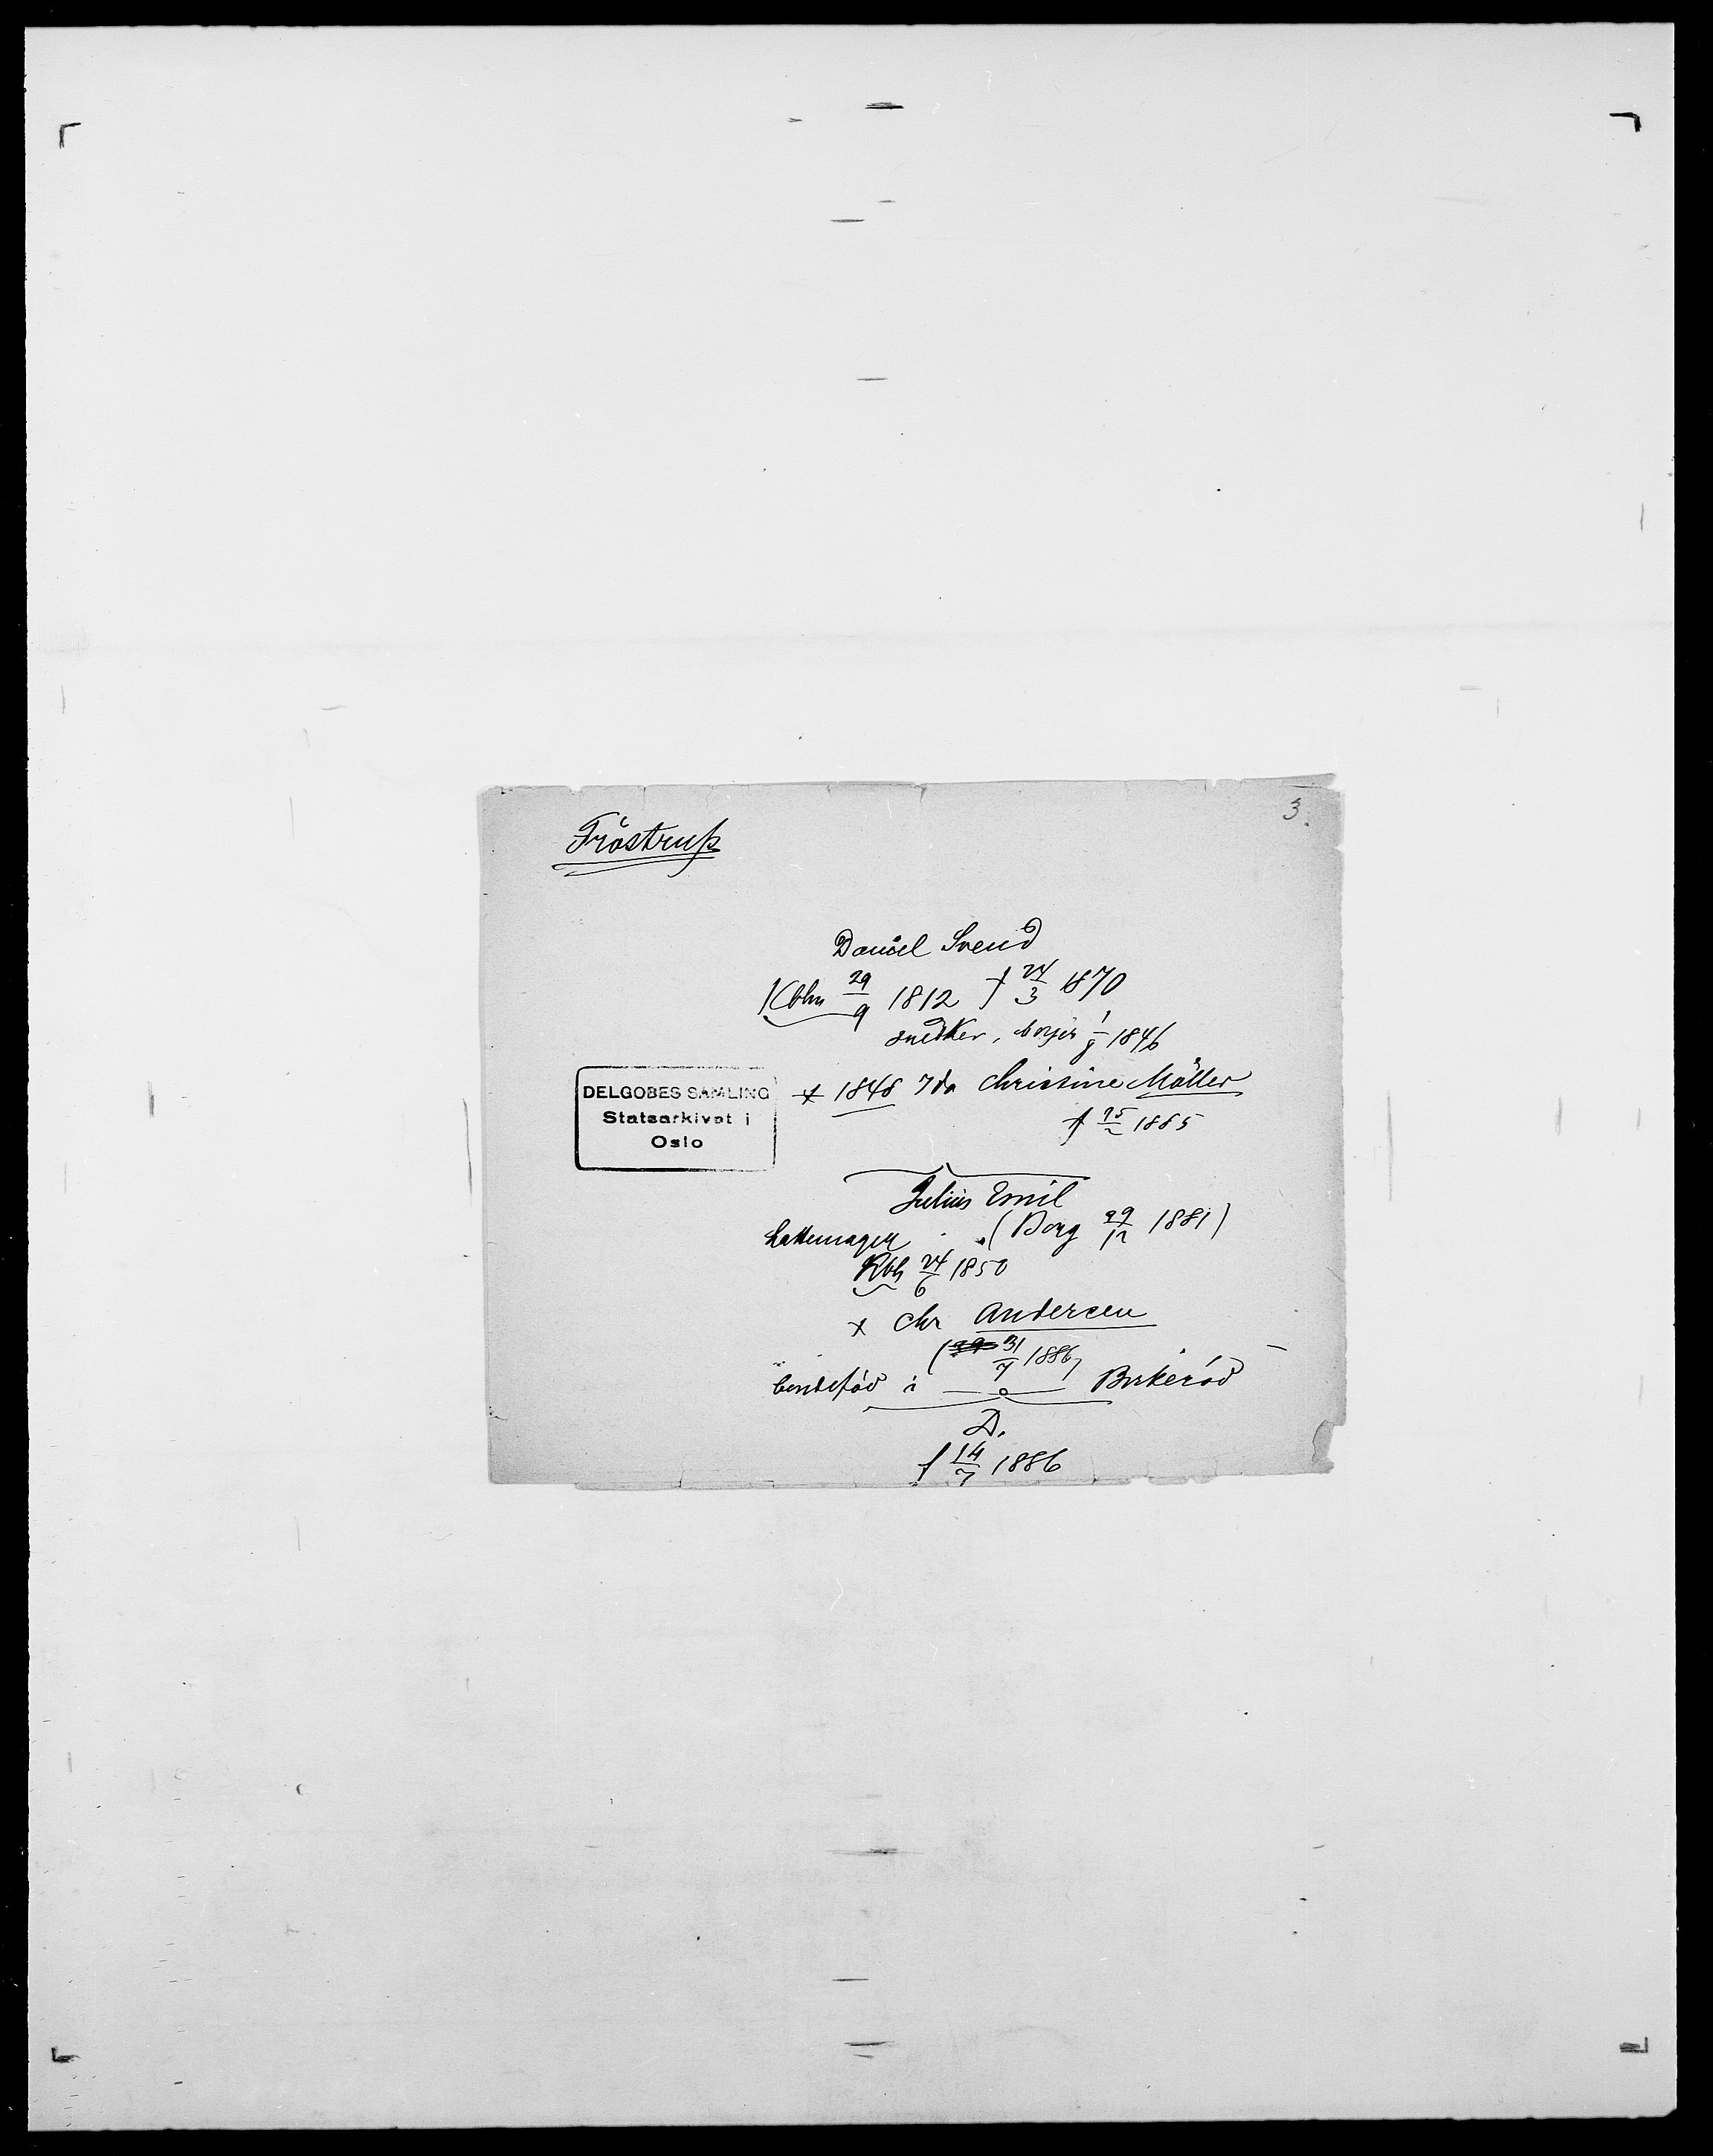 3.
Fröstrup
Daniel Svend
Kbhn 29/9 1812 † 24/3 1870
snedker, borger 1/8 1846
DELGOBES SAMLING
Statsarkivet i
Oslo
x 1848 Ida Christine Möller
† 15/2 1885
Julius Emil
Hattemager (Borg 29/12 1881)
Kbh 24/6 1850
x Chr Andersen
31/7 1886)
i Birkeröd
D.
† 14/7 1886